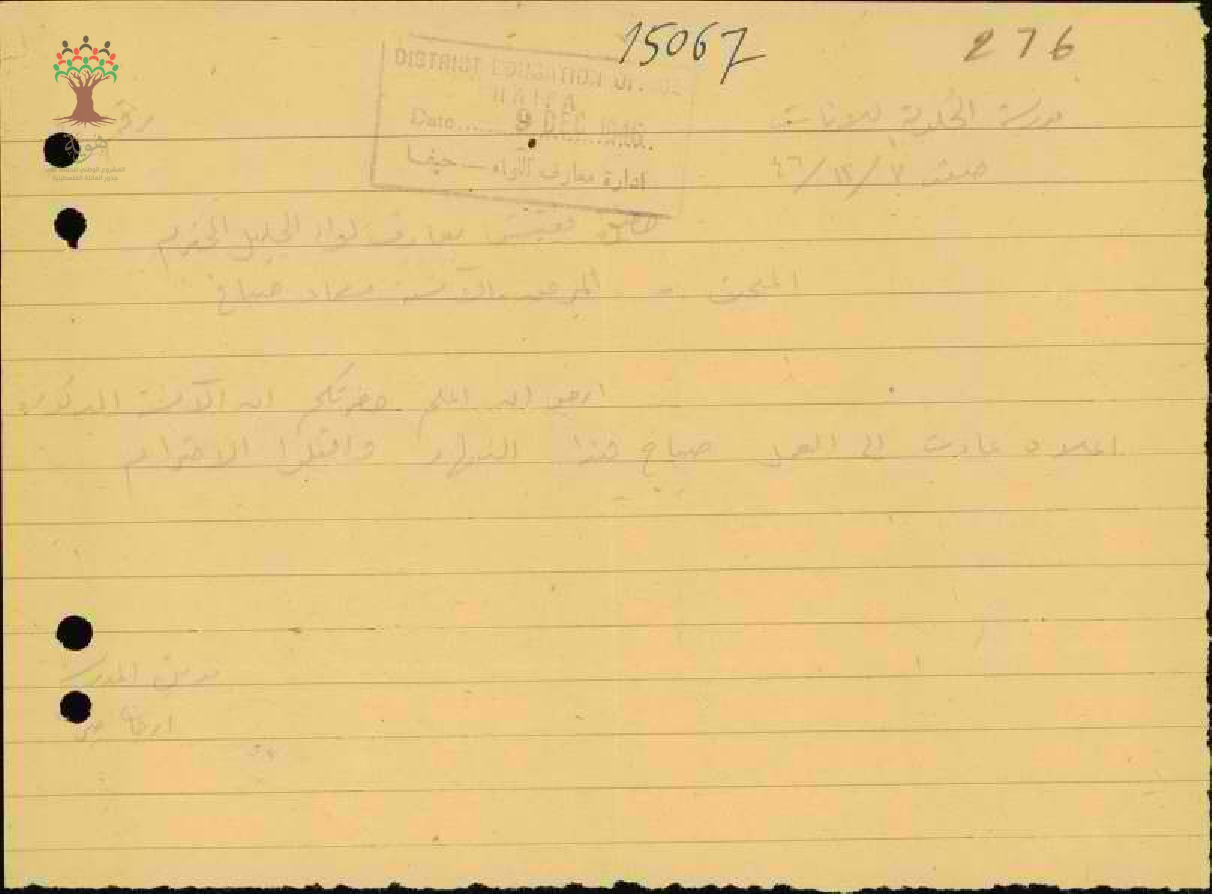 15067
276
DISTRICT EDUCATION OFFICE
HAIFA
Date...... 9 DEC 1946
ادارة معارف اللواء — حيفا
هوية
مدرسة الحكومة للبنات
رقم
صفد ٧/١٢/٤٦
مفتش معارف لواء الجليل المحترم
المبحث - المرجع الآنسة سعاد صباغ
ارجو ان اعلم حضرتكم ان الآنسة المذكورة
اعلاه عادت الى العمل صباح هذا النهار واقبلوا الاحترام
المدرسة